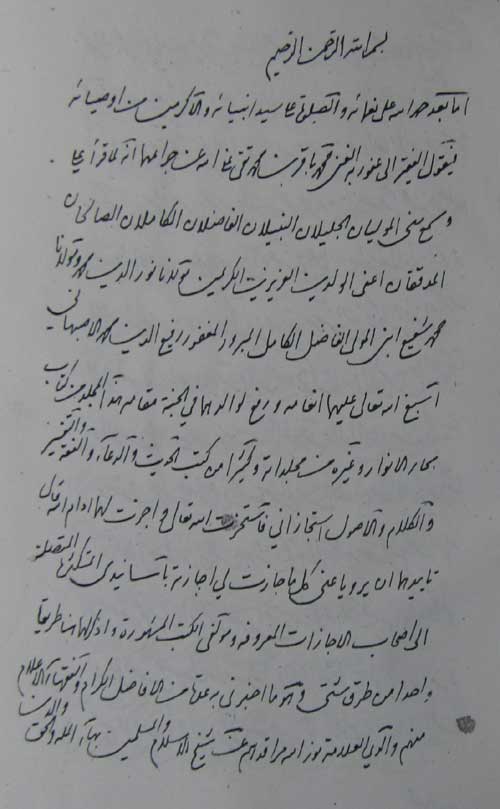 بسم الله الرحمن الرحیم
اما بعد حمد الله علی نعمائه والصلوة علی سید انبیائه والاکرمین من اوصیائه
فیقول الفقیر الی عفو ربه الغنی محمد باقر بن محمد تقی عفا الله عن جرائمهما انه لما قرأ علی
وسمع منی المولیان الجلیلان النبیلان الفاضلان الکاملان الصالحان
المدققان اعنی الولدین العزیزین الکریمین مولانا نور الدین محمد ومولانا
محمد شفیع ابنی المولی الفاضل الکامل المبرور المغفور رفیع الدین محمد الاصبهانی
اسبغ الله تعالی علیهما انعامه ورفع لوالدهما فی الجنة مقامه هذا المجلد من کتاب
بحار الانوار وغیره من مجلداته وکثیرا من کتب الحدیث والدعاء والفقه والتفسیر
والکلام والاصول استجازانی فاستخرت الله تعالی واجزت لهما ادام الله تعالی
تاییدهما ان یرویا عنی کل ما جازت لی اجازته باسانیدی المتکثرة المتصلة
الی اصحاب الاجازات المعروفه ومؤلفی الکتب المشهورة واذکر لهما هنا طریقا
واحدا من طرق شتی وهو ما اخبرنی به عدة من الافاضل الکرام والفقهاء الاعلام
منهم والدی العلامة نور الله مراقدهم عن شیخ الاسلام والمسلمین بهاء الملة والحق والدین